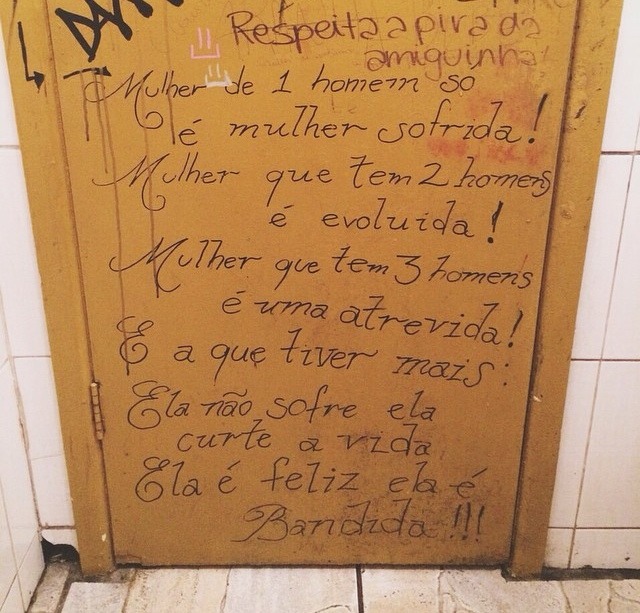 Respeita a pira da
amiguinha
Mulher de 1 homem so
é mulher sofrida!
Mulher que tem 2 homens
é evoluida!
Mulher que tem 3 homens
é uma atrevida!
E a que tiver mais:
Ela não sofre ela
curte a vida
Ela é feliz ela é
Bandida!!!